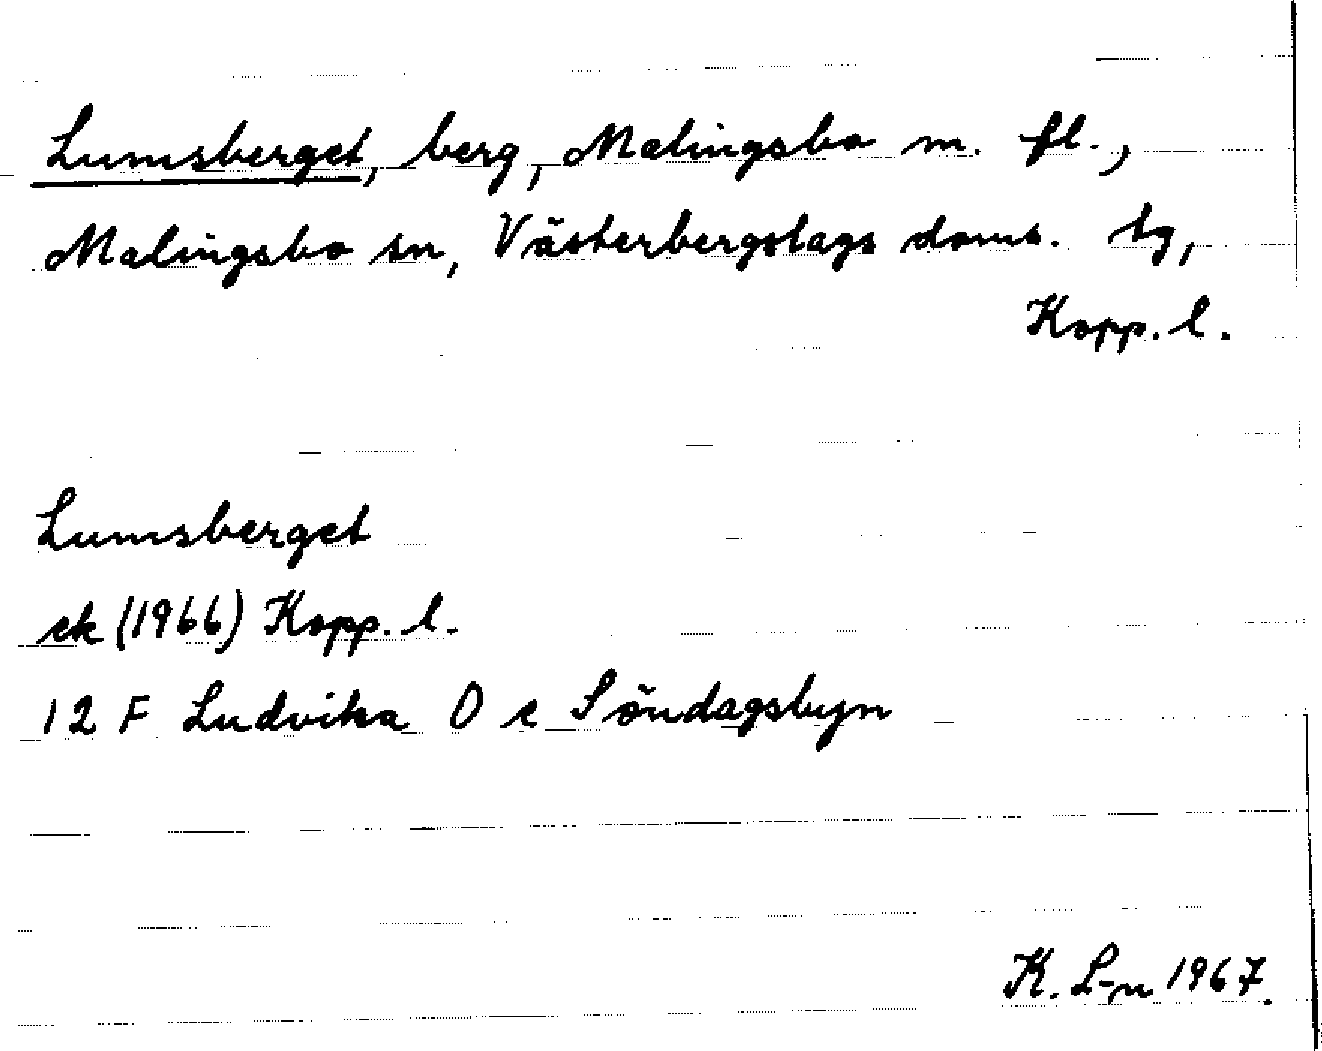 Lumsberget, berg, Malingsbo m. fl.,
Malingsbo sn, Västerbergslags doms. tg,
Kopp. l.
Lumsberget
ek (1966) Kopp. l.
12 F Ludvika O c Söndagsbyn
K. L-n 1967.